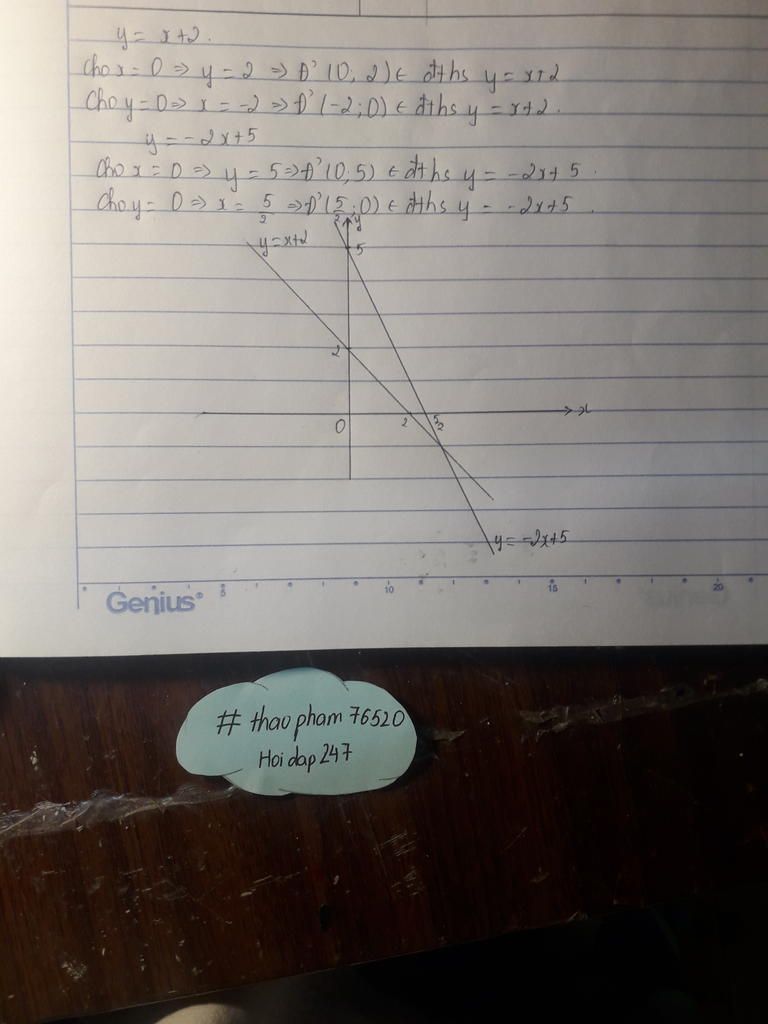 y = x+2.
Cho x = 0 => y = 2 => Đ' (0; 2) ∈ đths y = x+2
Cho y = 0 => x = -2 => Đ' (-2; 0) ∈ đths y = x+2.
y = -2x+5
Cho x = 0 => y = 5 => Đ' (0; 5) ∈ đths y = -2x+5.
Cho y = 0 => x = 5/2 => Đ' (5/2; 0) ∈ đths y = -2x+5.
y = x+2
y
5
2
0
2
5/2
x
y = -2x+5
5 10 15 20
Genius®
# thaopham76520
Hoidap247